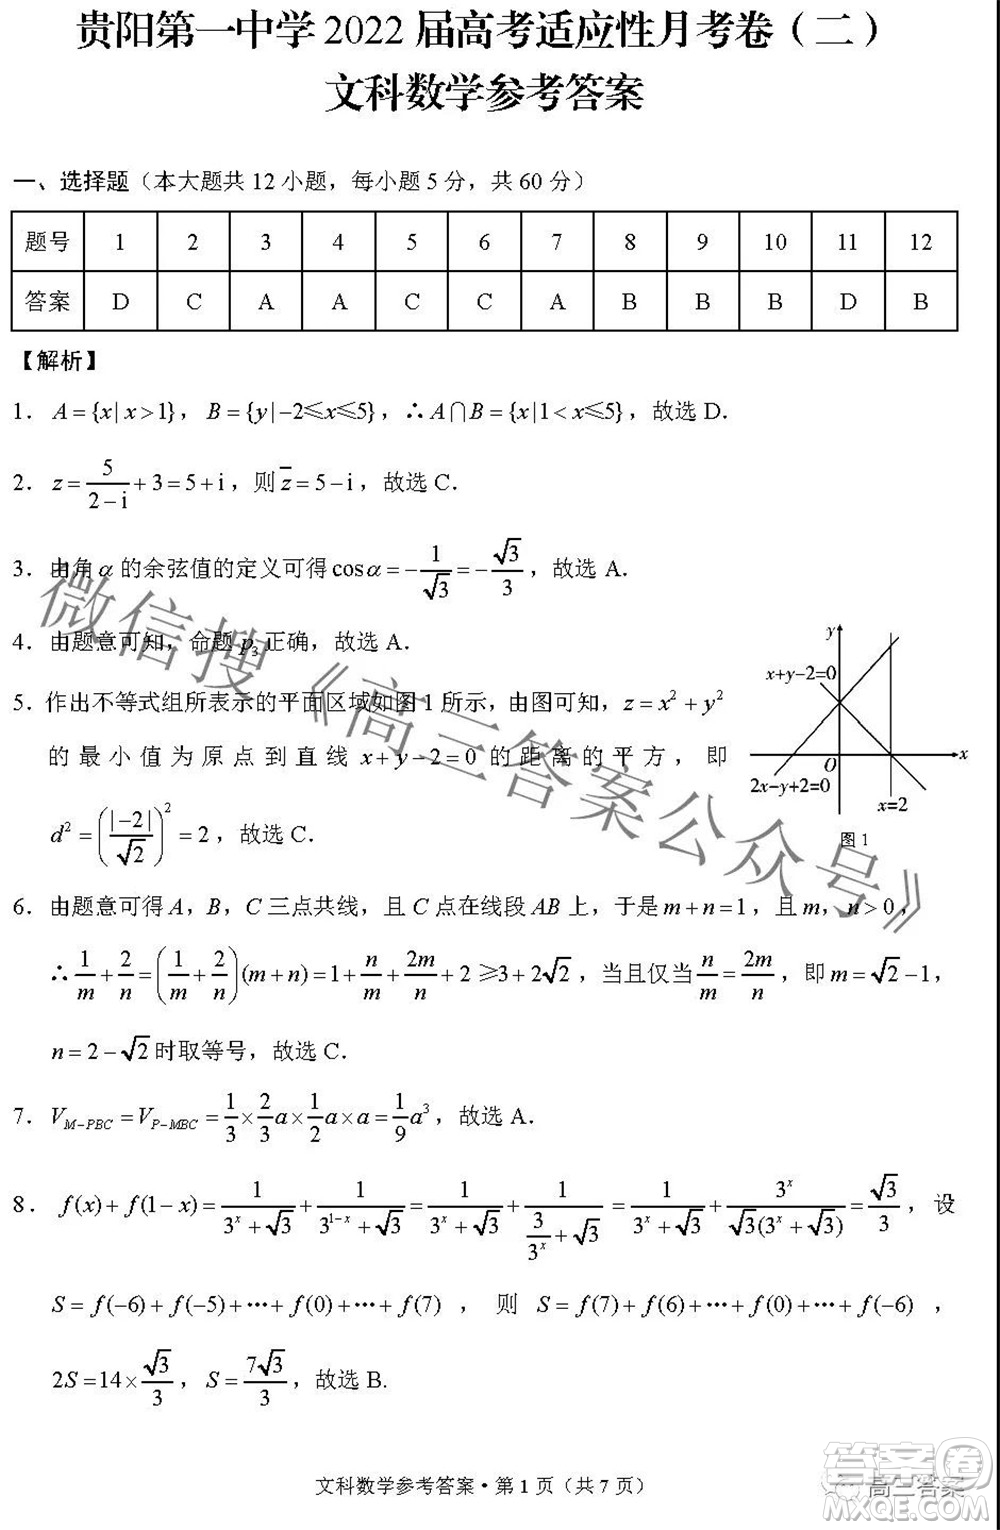 贵阳第一中学 2022 届高考适应性月考卷（二）
文科数学参考答案
一、选择题（本大题共 12 小题，每小题 5 分，共 60 分）
题号 1 2 3 4 5 6 7 8 9 10 11 12
答案 D C A A C C A B B B D B
【解析】
1． A={x|x>1}， B={y|−2≤x≤5}，∴A∩B={x|1<x≤5}，故选 D．
2． z=5/(2−i)+3=5+i，则 z̅=5−i，故选 C．
3．由角 α 的余弦值的定义可得 cosα=−1/√3=−√3/3，故选 A．
4．由题意可知，命题 p₃ 正确，故选 A．
5．作出不等式组所表示的平面区域如图 1 所示，由图可知，z=x²+y²
的最小值为原点到直线 x+y−2=0 的距离的平方，即
d²=(|−2|/√2)²=2，故选 C．
y
x+y−2=0
O
x
2x−y+2=0
x=2
图 1
6．由题意可得 A，B，C 三点共线，且 C 点在线段 AB 上，于是 m+n=1，且 m，n>0，
∴1/m+2/n=(1/m+2/n)(m+n)=1+n/m+2m/n+2≥3+2√2，当且仅当 n/m=2m/n，即 m=√2−1，
n=2−√2 时取等号，故选 C．
7． V_{M−PBC}=V_{P−MBC}=1/3×2/3a×1/2a×a=1/9a³，故选 A．
8． f(x)+f(1−x)=1/(3^x+√3)+1/(3^{1−x}+√3)=1/(3^x+√3)+1/(3/3^x+√3)=1/(3^x+√3)+3^x/(√3(3^x+√3))=√3/3，设
S=f(−6)+f(−5)+⋯+f(0)+⋯+f(7)，则 S=f(7)+f(6)+⋯+f(0)+⋯+f(−6)，
2S=14×√3/3，S=7√3/3，故选 B.
微信搜《高三答案公众号》
文科数学参考答案·第 1 页（共 7 页）
高三答案
答案圈
MXQE.COM